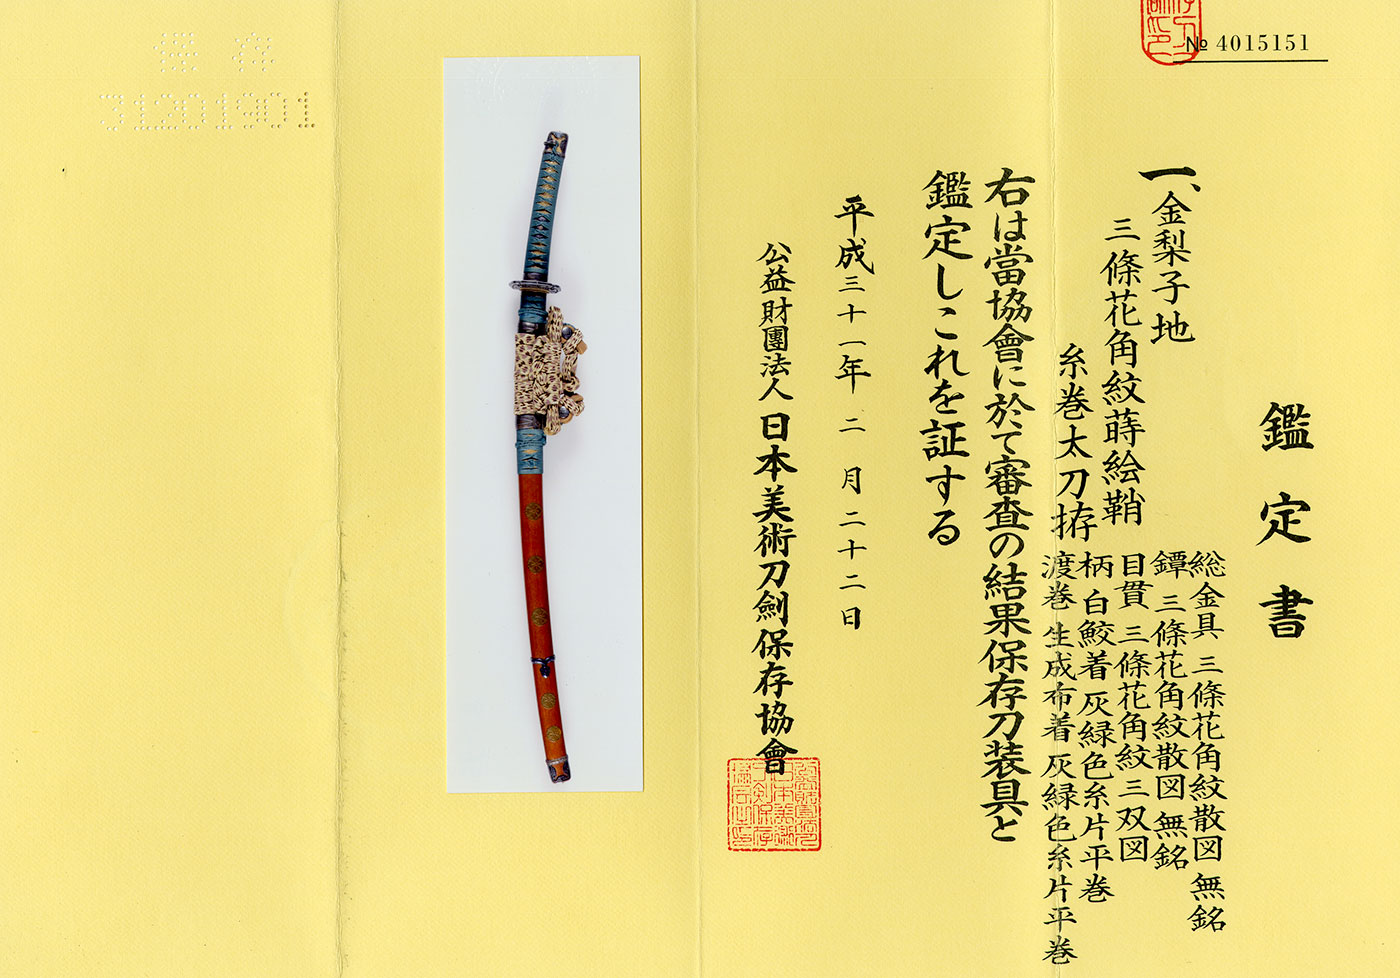 № 4015151
鑑定書
一、金梨子地
三條花角紋蒔絵鞘
糸巻太刀拵
総金具 三條花角紋散図 無銘
鐔 三條花角紋散図 無銘
目貫 三條花角紋三双図
柄 白鮫着灰緑色糸片平巻
渡巻 生成布着灰緑色糸片平巻
右は當協會に於て審査の結果保存刀装具と
鑑定しこれを証する
平成三十一年二月二十二日
公益財團法人日本美術刀劍保存協會
保存
31201901